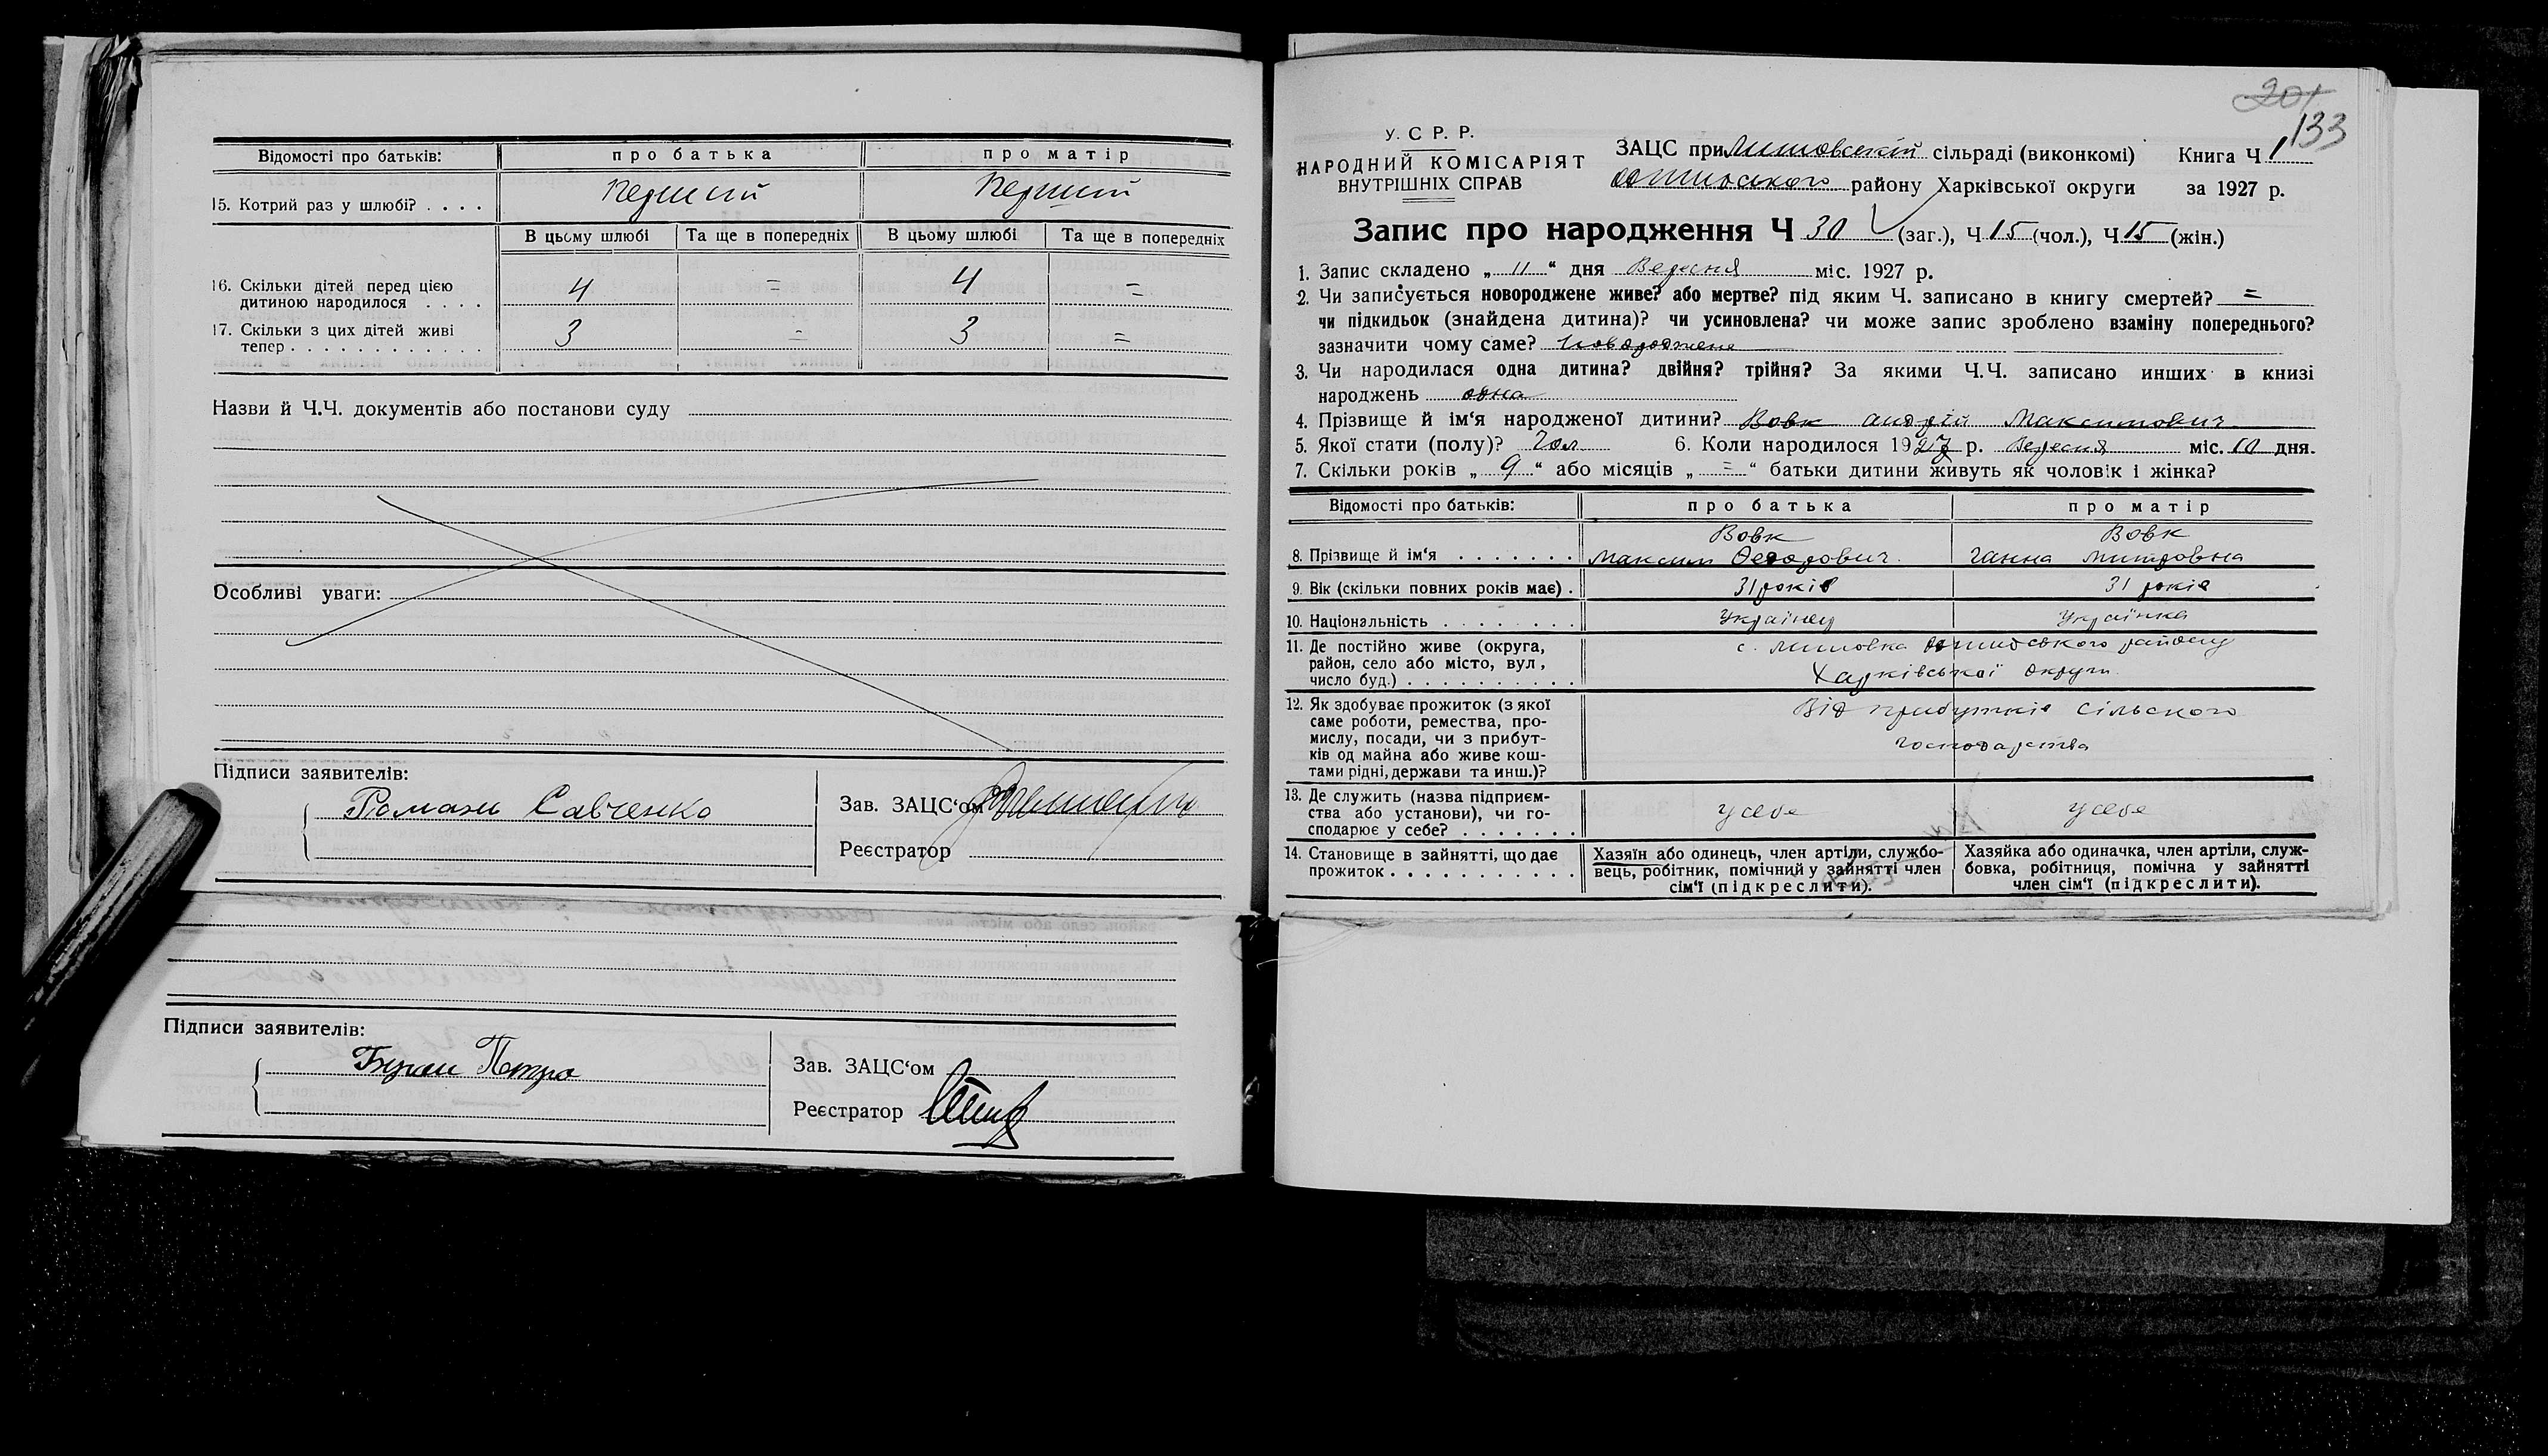 Відомості про батьків: про батька про матір
15. Котрий раз у шлюбі? . . . . Перший Перший
В цьому шлюбі Та ще в попередніх В цьому шлюбі Та ще в попередніх
16. Скільки дітей перед цією
дитиною народилося . . . . 4 = 4 =
17. Скільки з цих дітей живі
тепер . . . . . . . . . . . . 3 = 3 =
Назви й Ч.Ч. документів або постанови суду
Особливі уваги:
Підписи заявителів:
Романь Савченко
Зав. ЗАЦС'ом
Реєстратор
Підписи заявителів:
Петро
Зав. ЗАЦС'ом
Реєстратор
201
133
У. С Р. Р.
НАРОДНИЙ КОМІСАРІЯТ
ВНУТРІШНІХ СПРАВ
ЗАЦС при сільраді (виконкомі) Книга Ч 1
району Харківської округи за 1927 р.
Запис про народження Ч 30 (заг.), Ч 15 (чол.), Ч 15 (жін.)
1. Запис складено „ 11 “ дня Вересня міс. 1927 р.
2. Чи записується новороджене живе? або мертве? під яким Ч. записано в книгу смертей? =
чи підкидьок (знайдена дитина)? чи усиновлена? чи може запис зроблено взаміну попереднього?
зазначити чому саме? новороджене
3. Чи народилася одна дитина? двійня? трійня? За якими Ч.Ч. записано инших в книзі
народжень одна
4. Прізвище й ім'я народженої дитини? Вовк Андрій Максимович
5. Якої стати (полу)? Чол 6. Коли народилося 1927 р. Вересня міс. 10 дня.
7. Скільки років „ 9 “ або місяців „ = “ батьки дитини живуть як чоловік і жінка?
Відомості про батьків: про батька про матір
Вовк Вовк
8. Прізвище й ім'я . . . . . . . Максим Федорович Ганна Митровна
9. Вік (скільки повних років має) . 31 років 31 років
10. Національність . . . . . . . . Українец Українка
11. Де постійно живе (округа,
район, село або місто, вул,
число буд.) . . . . . . . . . . с. району
Харківської округи
12. Як здобуває прожиток (з якої
саме роботи, ремества, про-
мислу, посади, чи з прибут-
ків од майна або живе кош-
тами рідні, держави та инш.)?
Від прибутків сільского
господарства
13. Де служить (назва підприєм-
ства або установи), чи го-
сподарює у себе? . . . . . . . у себе у себе
14. Становище в зайнятті, що дає
прожиток . . . . . . . . . . .
Хазяїн або одинець, член артіли, службо-
вець, робітник, помічний у зайнятті член
сім'ї (підкреслити).
Хазяйка або одиначка, член артіли, служ-
бовка, робітниця, помічна у зайнятті
член сім'ї (підкреслити).